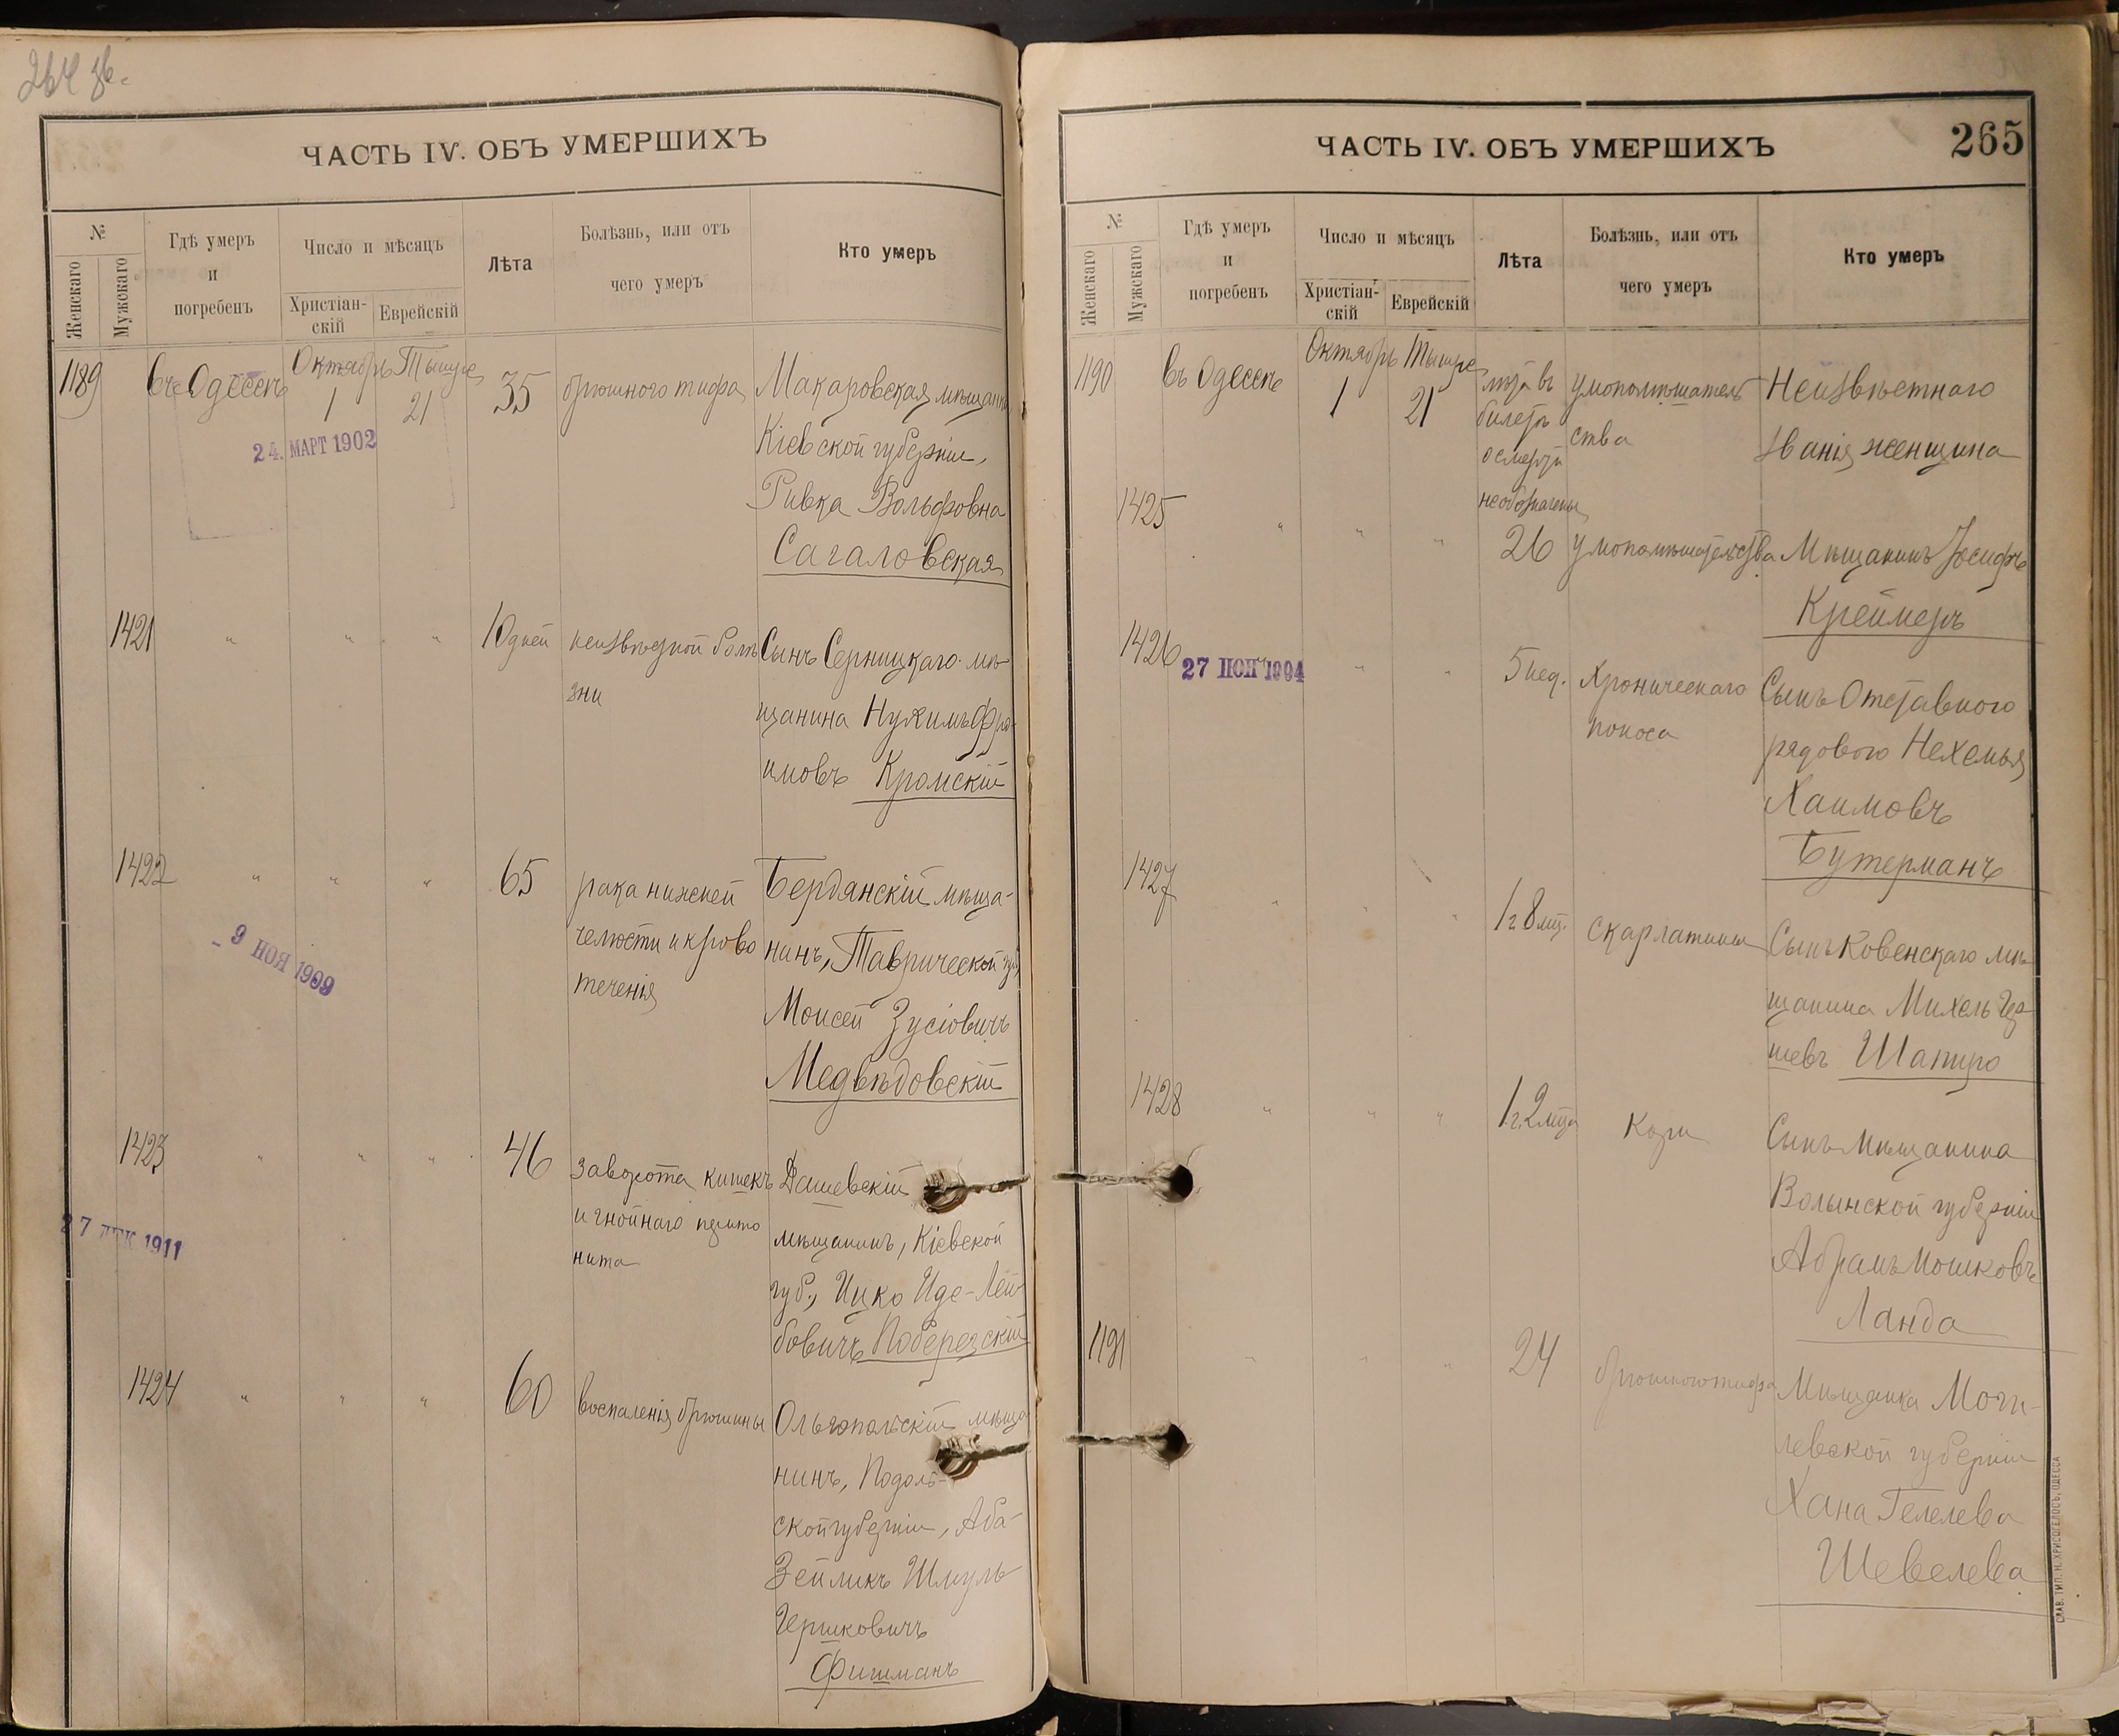 264 об.
ЧАСТЬ IV. ОБЪ УМЕРШИХЪ
№
Женскаго
Мужскаго
Гдѣ умеръ
и
погребенъ
Число и мѣсяцъ
Христіан-
скій
Еврейскій
Лѣта
Болѣзнь, или отъ
чего умеръ
Кто умеръ
1189
въ Одессѣ
Октябрь
1
Тышре
21
35
брюшного тифа
Макаровская мѣщанка
Кіевской губерніи,
Ривка Вольфовна
Сагаловская
24. МАРТ 1902
1421
" " "
10 дней
неизвѣстной болѣ
зни
Сынъ Серницкаго мѣ
щанина Нухимъ Фро-
имовъ Кромскій
1422
" " "
65
рака нижней
челюсти и крово
теченія
Бердянскій мѣща-
нинъ, Таврической губ,
Моисей Зусіовичъ
Медвѣдовскій
- 9 НОЯ 1909
1423
" " "
46
заворота кишекъ
и гнойнаго перито
нита
Дашевскій
мѣщанинъ, Кіевской
губ., Ицко Иде-Лей
бовичъ Поберезскій
27 ДЕК 1911
1424
" " "
60
воспаленія брюшины
Ольгопольскій мѣща
нинъ, Подоль-
ской губерніи, Аба-
Зейликъ Шмуль
Гершковичъ
Фишманъ
ЧАСТЬ IV. ОБЪ УМЕРШИХЪ
265
№
Женскаго
Мужскаго
Гдѣ умеръ
и
погребенъ
Число и мѣсяцъ
Христіан-
скій
Еврейскій
Лѣта
Болѣзнь, или отъ
чего умеръ
Кто умеръ
1190
въ Одессѣ
Октябрь
1
Тышре
21
лѣта въ
билетѣ
о смерти
необозначены
умопомѣшатель
ства
Неизвѣстнаго
званія женщина
1425
" " "
26
умопомѣшательства
Мѣщанинъ Іосифъ
Креймеръ
1426
27 НОЯ 1904
" "
5 нед.
Хроническаго
поноса
Сынъ Отставного
рядового Нехемья
Хаимовъ
Бутерманъ
1427
" " "
1 г. 8 мц.
скарлатины
Сынъ Ковенскаго мѣ
щанина Михель Гер
шевъ Шапиро
1428
" " "
1 г. 2 мца
Кори
Сынъ мѣщанина
Волынской губерніи
Абрамъ Мошковъ
Ланда
1191
" " "
24
брюшного тифа
Мѣщанка Моги-
левской губерніи
Хана Гелелева
Шевелева
СЛАВ. ТИП. Н. ХРИСОГЕЛОСЪ, ОДЕССА